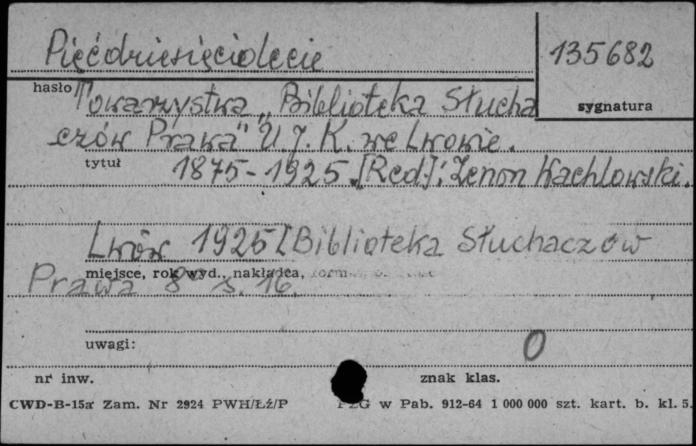 Pięćdziesięciolecie
135682
hasło
Towarzystwa „Biblioteka Słucha
sygnatura
czów Prawa" U. J. K. we Lwowie.
tytuł
1875-1925. [Red.]: Zenon Wachlowski.
Lwów 1925 [Biblioteka Słuchaczów
miejsce, rok wyd., nakładca,
Prawa 8° s. 16.
uwagi:
0
nr inw.
znak klas.
CWD-B-15a Zam. Nr 2924 PWH/Łź/P
PZG w Pab. 912-64 1 000 000 szt. kart. b. kl. 5.